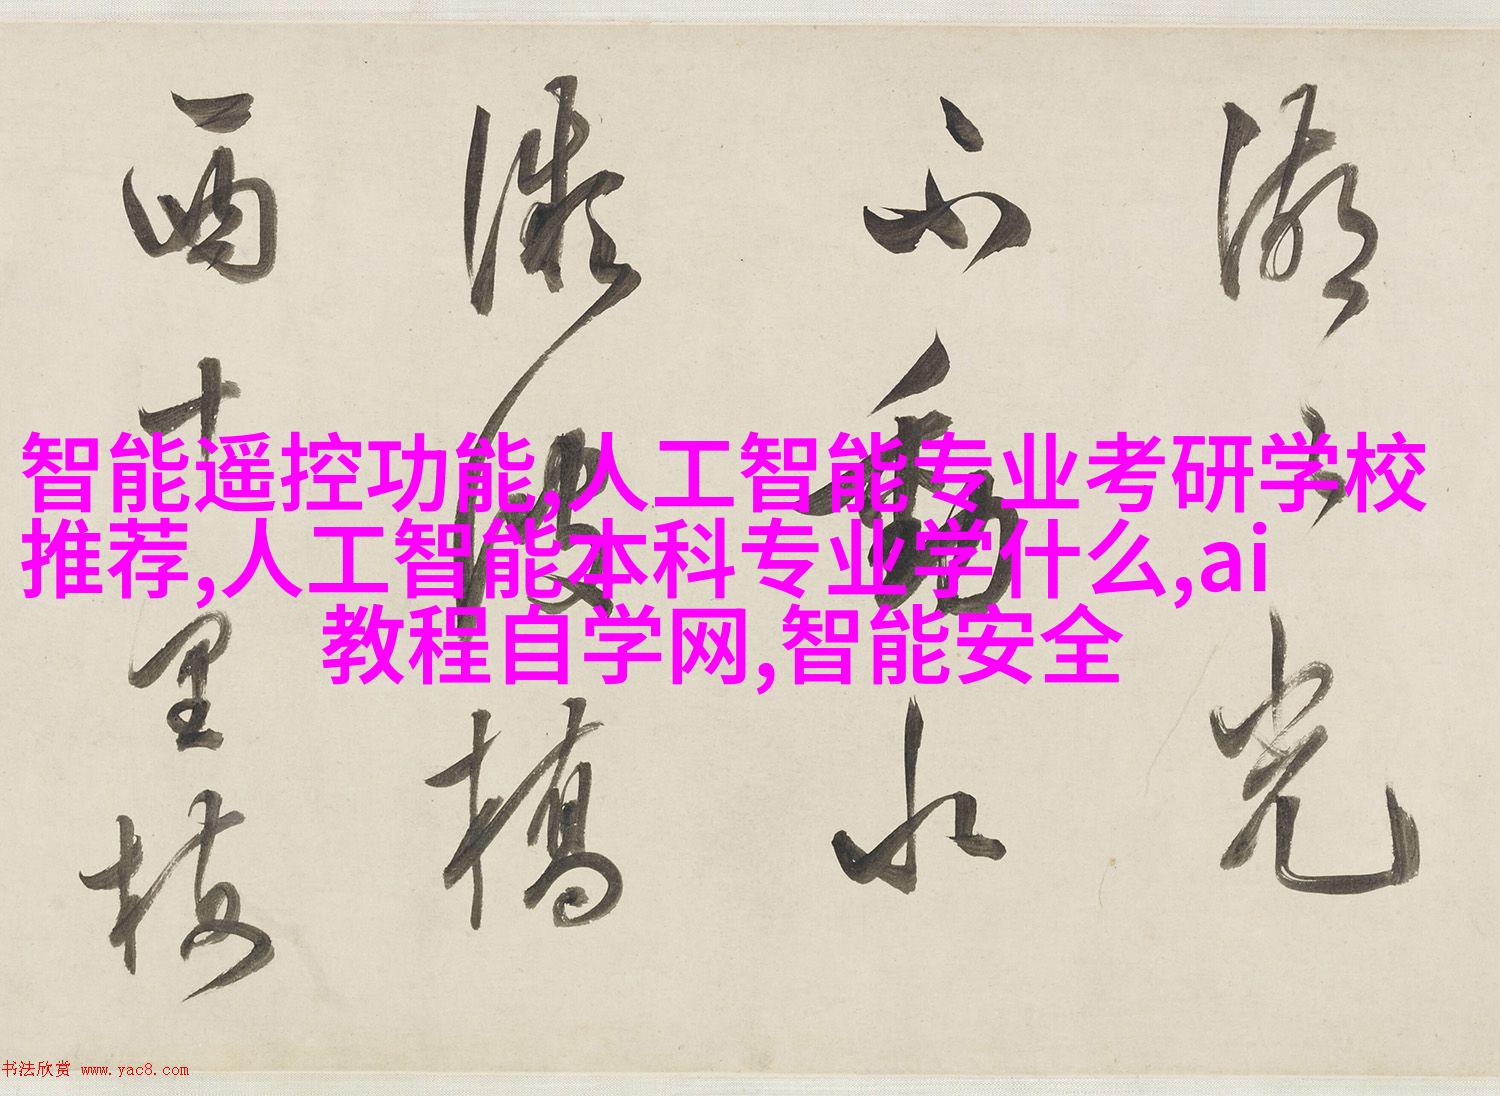 智能遥控功能,人工智能专业考研学校
推荐,人工智能本科专业学什么,ai
教程自学网,智能安全
湖光
不動水
波橋
西十里梅
书法欣赏 www.yac8.com